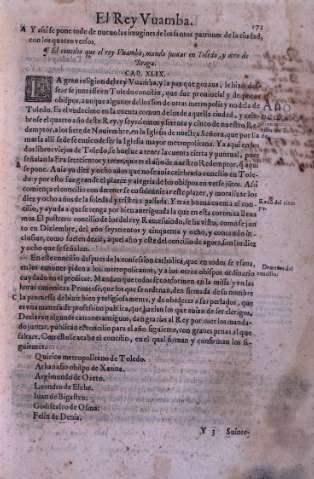 El Rey Vuamba. 171
A Y assi se pone todo de nueuo las imagines de los santos patrones de la ciudad,
con los quatro versos.
El concilio que el rey Vuamba, mando juntar en Toledo, y otro de
Braga.
CAP. XLIX.
LA gran religion del rey Vuamba, y la paz que gozaua, le hizo
se juntasse en Toledo concilio, que fue prouincial y de pocos
obispos, aunque algunos dellos son de otras metropolis y no de la de
Toledo. Es el vndecimo en la cuenta comun de los de aquella ciudad, y
brose el quarto año deste Rey, y seyscientos y setenta y cinco de nuestro Re
demptor, a los siete de Nouiembre, en la iglesia de nuestra Señora, que por la
lla alli se da se entiende ser la Iglesia mayor metropolitana. Ya aqui en
dos libros viejos de Toledo, se buelue a tener la cuenta cierta y puntual, pues
señalan la Era setecientos y treze, que es el año de nuestro Redemptor,
se pone. Auia ya diez y ocho años que no se auia celebrado concilio en Tole-
do: y por esto fue grande el plazer y alegria de los obispos en verse juntos. Assi
comiença el concilio con detenerse en solenizar este plazer, y moralizar los
diez y ocho años de la soledad y tristeza passada. Y trae buena cuenta el con-
cilio, y ayuda a que se tenga por bien aueriguada la que en esta coronica lleua
mos. El postrero concilio del rey Recesuindo, se ha visto, como se jun-
to en Diziembre, del año seyscientos y cinquenta y seys, y contando in-
clusiue, como suelen dezir, aquel año y este del concilio de agora, son los diez
y ocho que se señalan.
En este concilio despues de la confession catholica, que en todos se vsaua,
los metropolitanos, y a los otros obispos diuersos
cuydados en el predicar. Mandan que todos se conformen en la missa y en las
horas canonicas
C la promessa de biuir bien y religiosamente, y de obedecer a sus perlados, que
es vna materia de profession publica, que hazian los que auian de ser clerigos.
Declarado algunos canones antiguos, dan gracias al Rey por auer los manda-
do juntar, publicase concilio para el año siguiente, con graues penas al que
faltare. Con esto se acaba el concilio, en el qual firman y confirman los si-
guientes.
Quirico metropolitano de Toledo.
Athanasio obispo de Xatiua.
Argimundo de Oreto.
Leandro de Elche.
Iuan de Bigastro.
Godiscalco de Osma.
Felix de Denia.
Y 3 Suinte-
Año
Decretos del
concilio.